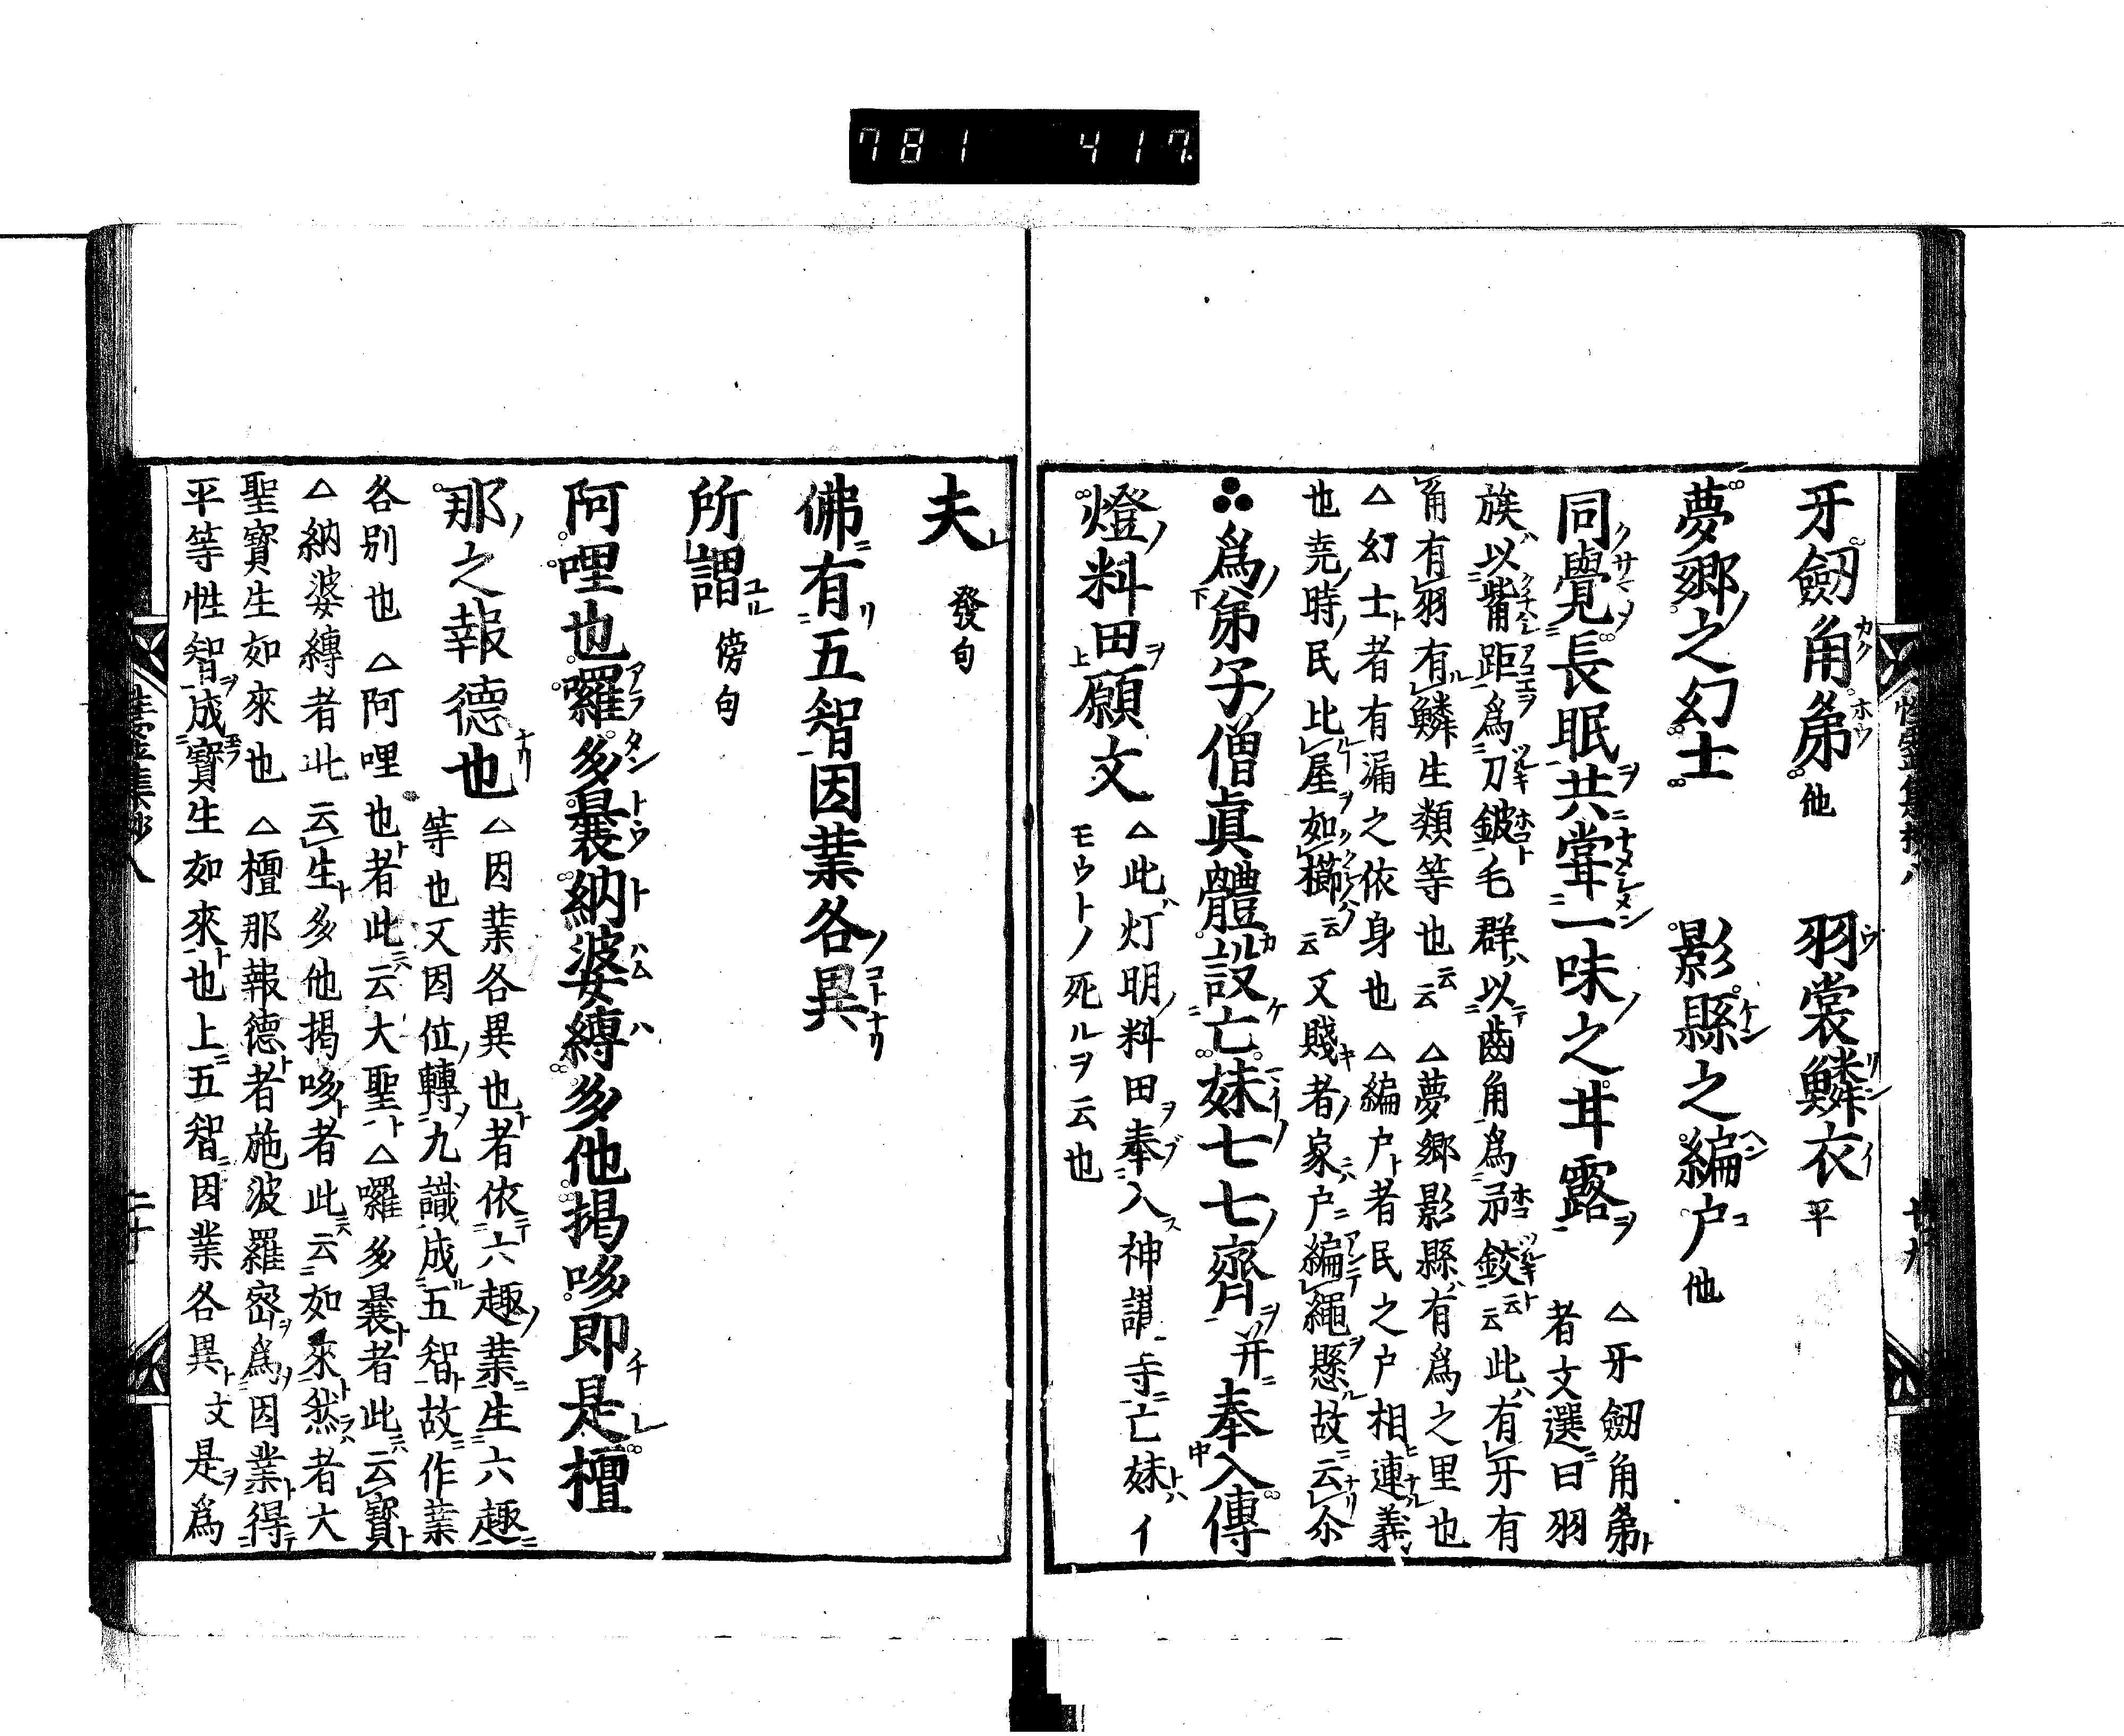 781 417
牙劔角弟他 羽裳鱗衣平
夢郷之幻士 影縣之編戸他
同覺長眠共甞一味之甘露
△牙劔角弟
者文選曰羽
族以觜距爲刀鈹毛群以齒角爲鋏云云此有牙有
角有羽有鱗生類等也云云△夢郷影縣有爲之里也
△幻士者有漏之依身也△編戸者民之戸相連義
也尭時民比屋如櫛云云又賤者家戸編繩懸故云尒
爲弟子僧眞體設亡妹七七齊并奉入傳
燈料田願文
△此灯明料田奉入神護寺亡妹イ
モウトノ死ルヲ云也
夫 發句
佛有五智因葉各異
所謂 傍句
阿哩也囉多曩納婆縛多他掲哆即是檀
那之報德也
△因葉各異也者依六趣葉生六趣
等也又因位轉九識成五智故作葉
各別也△阿哩也者此云大聖△囉多曩者此云寳
△納婆縛者此云生多他掲哆者此云如來然者大
聖寳生如來也△檀那報德者施波羅密爲因業得
平等性智成寳生如來也上五智因業各異文是爲